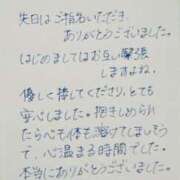 先日はご指名いただき、
ありがとうございました。
はじめましてはお互い緊張
しますよね。
優しく接してくださり、とても
安心しました。抱きしめられ
たら心も体も溶けてしまいそう
で、心温まる時間でした。
本当にありがとうございました。